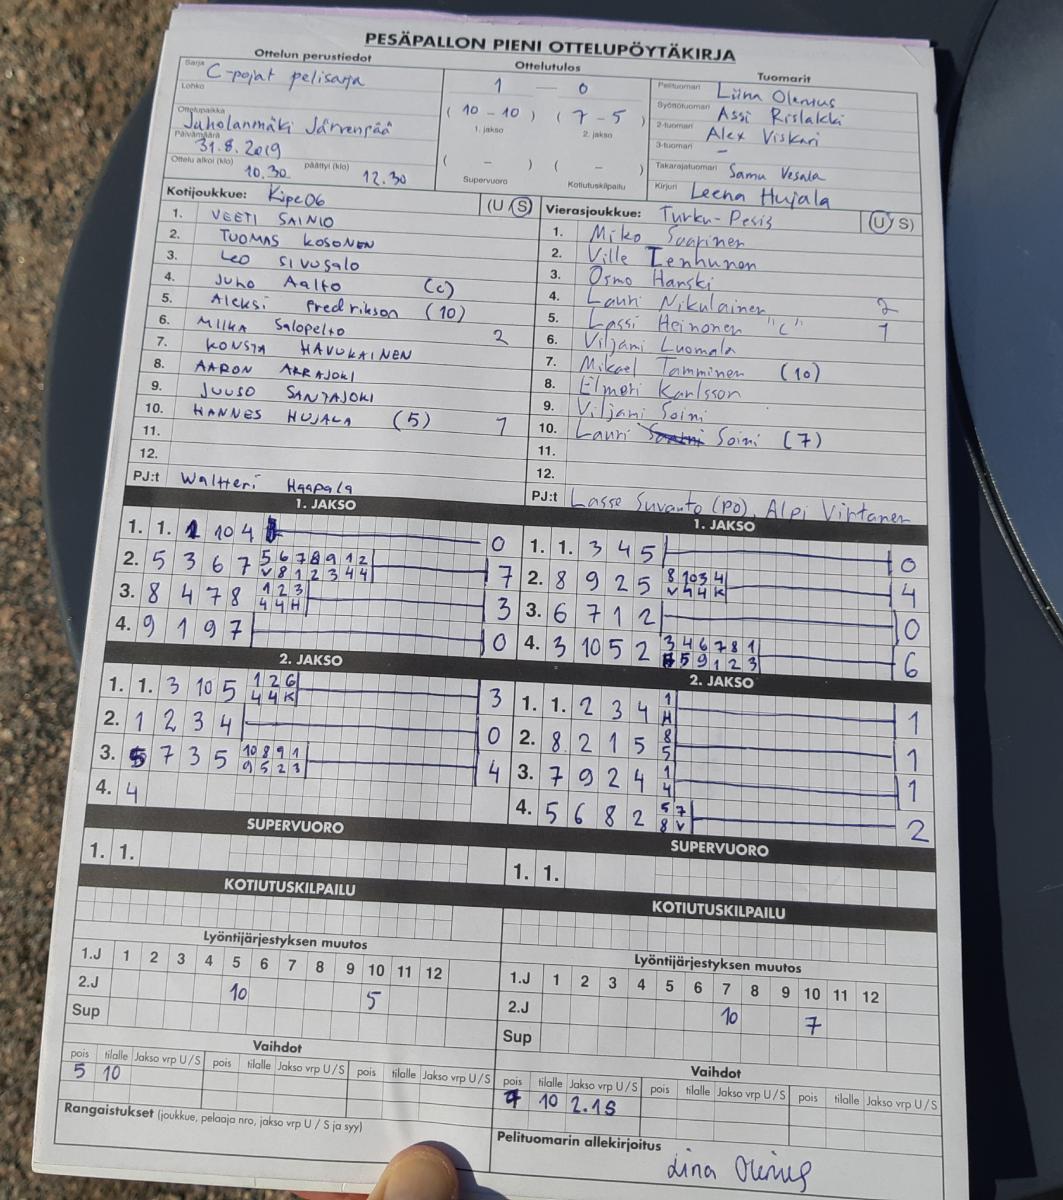 PESÄPALLON PIENI OTTELUPÖYTÄKIRJA
Ottelun perustiedot
Sarja C-pojat pelisarja
Lohko
Ottelupaikka
Juholanmäki Järvenpää
Päivämäärä
31.8.2019
Ottelu alkoi (klo) 10.30 päättyi (klo) 12.30
Ottelutulos
1 — 0
(10 - 10) (7 - 5)
1. jakso 2. jakso
( - ) ( - )
Supervuoro Kotiutuskilpailu
Tuomarit
Pelituomari Liina Olenius
Syöttötuomari Assi Rislakki
2-tuomari Alex Viskari
3-tuomari -
Takarajatuomari Samu Vesala
Kirjuri Leena Hujala
Kotijoukkue: Kipe06 (U S)
1. VEETI SAINIO
2. TUOMAS KOSONEN
3. LEO SIVUSALO
4. Juho Aalto (c)
5. Aleksi Fredrikson (10)
6. MIIKA Salopelto 2
7. KONSTA HAVUKAINEN
8. AARON ARRAJOKI
9. JUUSO SANTAJOKI
10. HANNES HUJALA (5) 1
11.
12.
PJ:t Waltteri Haapala
Vierasjoukkue: Turku-Pesis (U S)
1. Miko Saarinen
2. Ville Tenhunen
3. Osmo Hanski
4. Lauri Nikulainen 2
5. Lassi Heinonen "C" 1
6. Viljami Luomala
7. Mikael Tamminen (10)
8. Elmeri Karlsson
9. Viljami Soini
10. Lauri Soini (7)
11.
12.
PJ:t Lasse Suvanto (PO), Alpi Virtanen
1. JAKSO
1. 1. 1 10 4 0
2. 5 3 6 7 5 6 7 8 9 1 2 7
V 8 1 2 3 4 4
3. 8 4 7 8 1 2 3 3
4 4 H
4. 9 1 9 7 0
2. JAKSO
1. 1. 3 10 5 1 2 6 3
4 4 K
2. 1 2 3 4 0
3. 5 7 3 5 10 8 9 1 4
9 5 2 3
4. 4
SUPERVUORO
1. 1.
KOTIUTUSKILPAILU
Lyöntijärjestyksen muutos
1.J 1 2 3 4 5 6 7 8 9 10 11 12
2.J 10 5
Sup
Vaihdot
pois tilalle Jakso vrp U/S pois tilalle Jakso vrp U/S pois tilalle Jakso vrp U/S
5 10
Rangaistukset (joukkue, pelaaja nro, jakso vrp U / S ja syy)
1. JAKSO
1. 1. 3 4 5 0
2. 8 9 2 5 8 10 3 4 4
V 4 4 K
3. 6 7 1 2 0
4. 3 10 5 2 3 4 6 7 8 1 6
5 9 1 2 3
2. JAKSO
1. 1. 2 3 4 1 1
H
2. 8 2 1 5 8 1
5
3. 7 9 2 4 1 1
4
4. 5 6 8 2 5 7 2
8 V
SUPERVUORO
1. 1.
KOTIUTUSKILPAILU
Lyöntijärjestyksen muutos
1.J 1 2 3 4 5 6 7 8 9 10 11 12
2.J 10 7
Sup
Vaihdot
pois tilalle Jakso vrp U/S pois tilalle Jakso vrp U/S pois tilalle Jakso vrp U/S
7 10 2.1S
Pelituomarin allekirjoitus
Liina Olenius